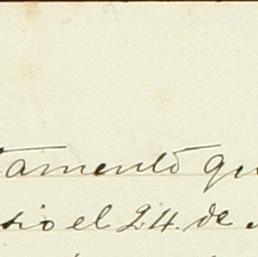 tamento qu
sio el 24. de